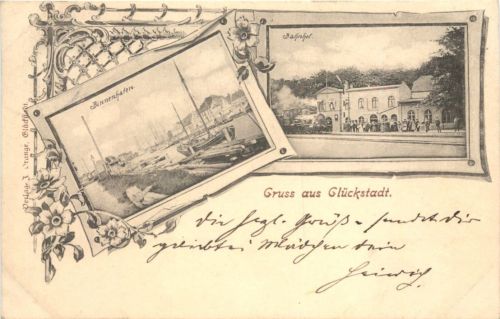 Bahnhof.
Binnenhafen.
Verlag J. Orange, Glückstadt
Gruss aus Glückstadt.
die herzl. Grüße sendet dir
geliebtes Mädchen dein
Heinrich